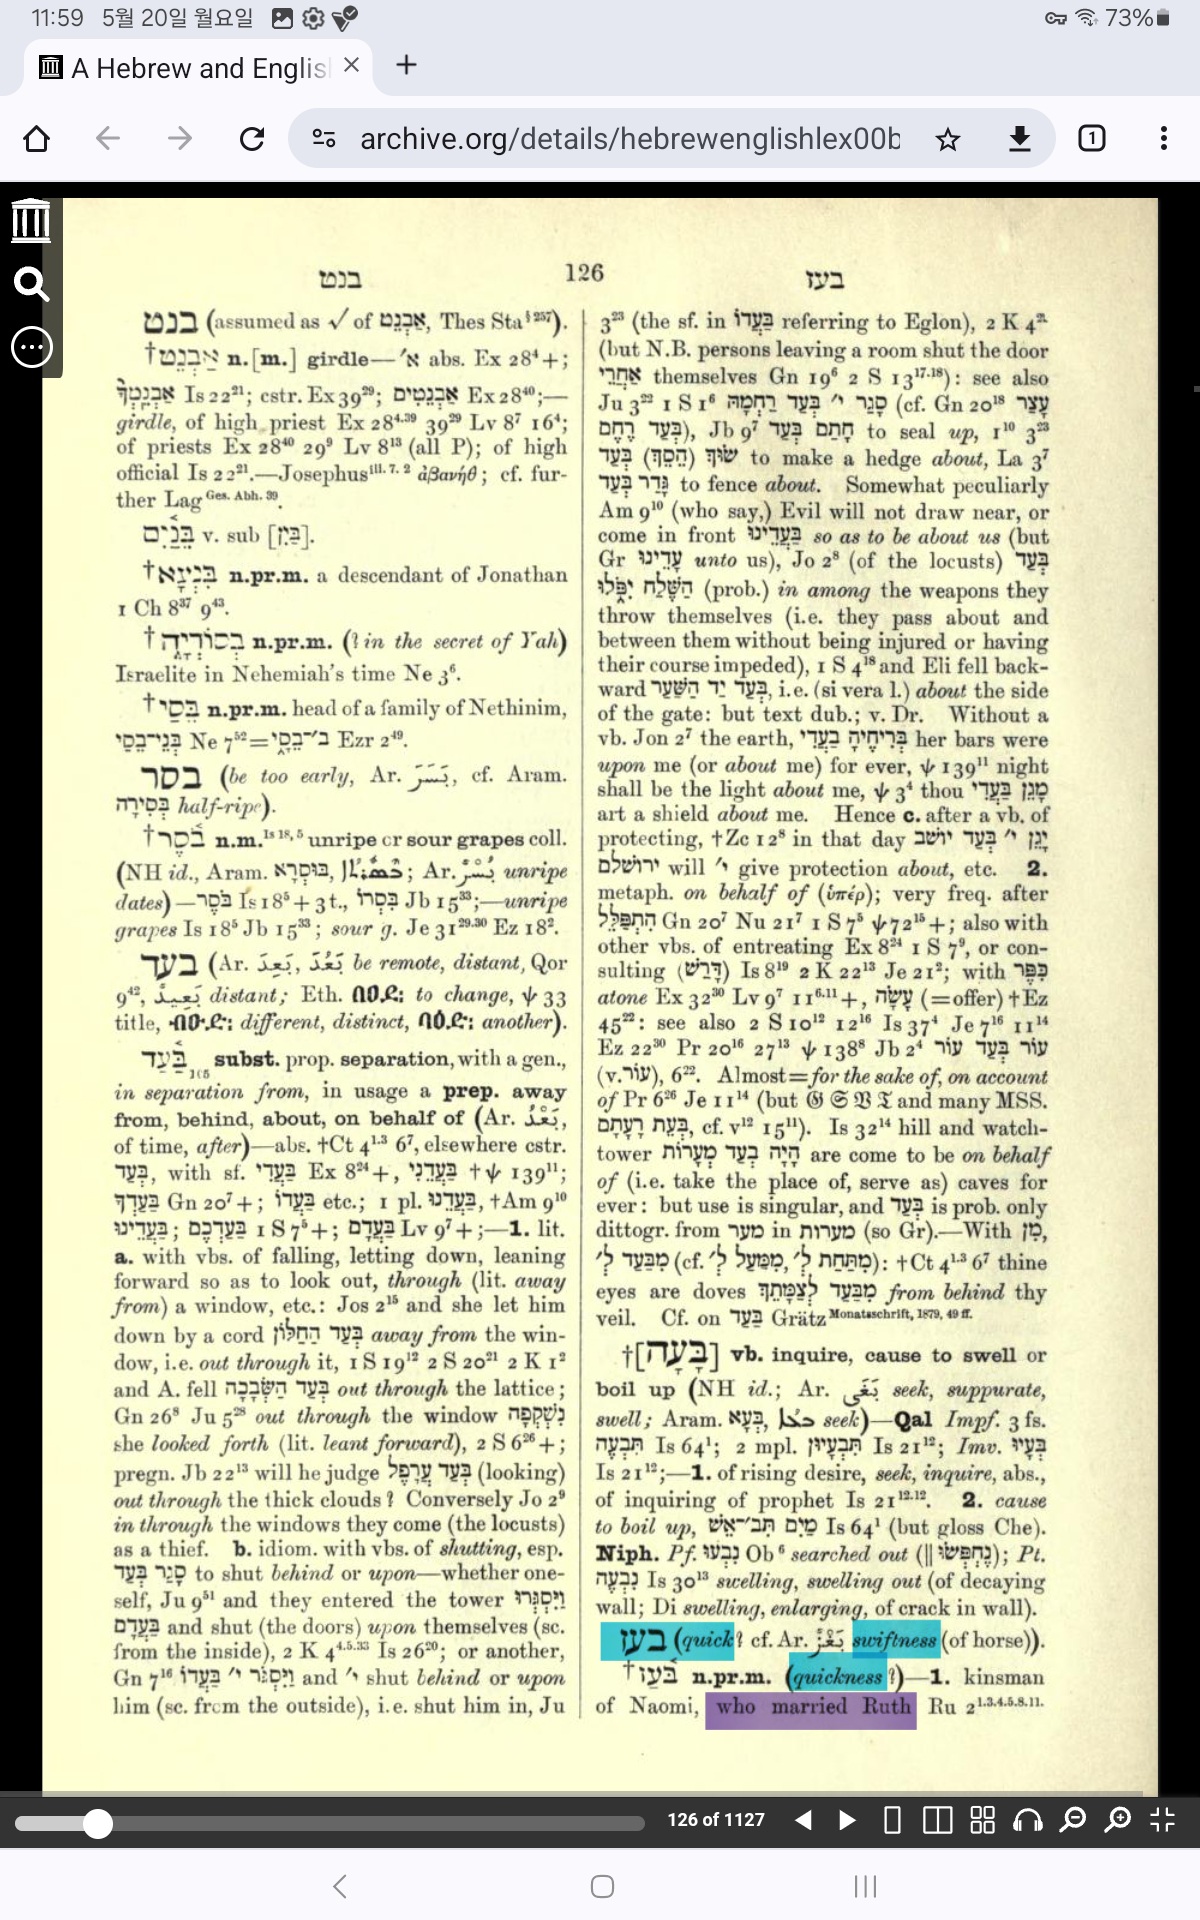 11:59 5월 20일 월요일
73%
A Hebrew and Englis
archive.org/details/hebrewenglishlex00b
1
בנט
126
בעז
בנט (assumed as √ of אַבְנֵט, Thes Sta§ 257).
†אַבְנֵט n.[m.] girdle—א׳ abs. Ex 28⁴+;
Is 22²¹; cstr. Ex 39²⁹; אַבְנֵטִים Ex 28⁴⁰;—
girdle, of high priest Ex 28⁴·³⁹ 39²⁹ Lv 8⁷ 16⁴;
of priests Ex 28⁴⁰ 29⁹ Lv 8¹³ (all P); of high
official Is 22²¹.—Josephus iii. 7. 2 ἀβανήθ; cf. fur-
ther Lag Ges. Abh. 39.
בֵּנַיִם v. sub [בַּיִן].
†בִּנְעָא n.pr.m. a descendant of Jonathan
1 Ch 8³⁷ 9⁴³.
†בְּסוֹדְיָה n.pr.m. (? in the secret of Yah)
Israelite in Nehemiah's time Ne 3⁶.
†בֵּסַי n.pr.m. head of a family of Nethinim,
בְּנֵי־בֵסַי Ne 7⁵²=ב׳־בֵסָי Ezr 2⁴⁹.
בסר (be too early, Ar. بَسَرَ, cf. Aram.
בְּסִירָה half-ripe).
†בֹּסֶר n.m. Is 18, 5 unripe or sour grapes coll.
(NH id., Aram. בּוּסְרָא, ; Ar. بُسْرٌ unripe
dates)—בֹּסֶר Is 18⁵+3 t., בִּסְרוֹ Jb 15³³;—unripe
grapes Is 18⁵ Jb 15³³; sour g. Je 31²⁹·³⁰ Ez 18².
בעד (Ar. بَعِدَ, بَعُدَ be remote, distant, Qor
9⁴², بَعِيدٌ distant; Eth. to change, ψ 33
title, different, distinct, another).
בַּעַד subst. prop. separation, with a gen.,
in separation from, in usage a prep. away
from, behind, about, on behalf of (Ar. بَعْدُ,
of time, after)—abs. †Ct 4¹·³ 6⁷, elsewhere cstr.
בְּעַד, with sf. בַּעֲדִי Ex 8²⁴+, בַּעֲדֵנִי †ψ 139¹¹;
בַּעַדְךָ Gn 20⁷+; בַּעֲדוֹ etc.; 1 pl. בַּעֲדֵנוּ, †Am 9¹⁰
בַּעֲדֵינוּ; בַּעַדְכֶם 1 S 7⁵+; בַּעֲדָם Lv 9⁷+;—1. lit.
a. with vbs. of falling, letting down, leaning
forward so as to look out, through (lit. away
from) a window, etc.: Jos 2¹⁵ and she let him
down by a cord בְּעַד הַחַלּוֹן away from the win-
dow, i.e. out through it, 1 S 19¹² 2 S 20²¹ 2 K 1²
and A. fell בְּעַד הַשְּׂבָכָה out through the lattice;
Gn 26⁸ Ju 5²⁸ out through the window נִשְׁקְפָה
she looked forth (lit. leant forward), 2 S 6²⁶+;
pregn. Jb 22¹³ will he judge בְּעַד עֲרָפֶל (looking)
out through the thick clouds? Conversely Jo 2⁹
in through the windows they come (the locusts)
as a thief. b. idiom. with vbs. of shutting, esp.
סָגַר בְּעַד to shut behind or upon—whether one-
self, Ju 9⁵¹ and they entered the tower וַיִּסְגְּרוּ
בַּעֲדָם and shut (the doors) upon themselves (sc.
from the inside), 2 K 4⁴·⁵·³³ Is 26²⁰; or another,
Gn 7¹⁶ וַיִּסְגֹּר י׳ בַּעֲדוֹ and י׳ shut behind or upon
him (sc. from the outside), i.e. shut him in, Ju
3²³ (the sf. in בַּעֲדוֹ referring to Eglon), 2 K 4²¹
(but N.B. persons leaving a room shut the door
אחרי themselves Gn 19⁶ 2 S 13¹⁷·¹⁸): see also
Ju 3²² 1 S 1⁶ סָגַר י׳ בְּעַד רַחְמָהּ (cf. Gn 20¹⁸ עָצַר
בְּעַד רֶחֶם), Jb 9⁷ חָתַם בְּעַד to seal up, 1¹⁰ 3²³
שׂוּךְ (הֵסֵךְ) בְּעַד to make a hedge about, La 3⁷
גָּדַר בְּעַד to fence about. Somewhat peculiarly
Am 9¹⁰ (who say,) Evil will not draw near, or
come in front בַּעֲדֵינוּ so as to be about us (but
Gr עָדֵינוּ unto us), Jo 2⁸ (of the locusts) בְּעַד
הַשֶּׁלַח יִפֹּלוּ (prob.) in among the weapons they
throw themselves (i.e. they pass about and
between them without being injured or having
their course impeded), 1 S 4¹⁸ and Eli fell back-
ward בְּעַד יַד הַשַּׁעַר, i.e. (si vera l.) about the side
of the gate: but text dub.; v. Dr. Without a
vb. Jon 2⁷ the earth, בְּרִיחֶיהָ בַעֲדִי her bars were
upon me (or about me) for ever, ψ 139¹¹ night
shall be the light about me, ψ 3⁴ thou מָגֵן בַּעֲדִי
art a shield about me. Hence c. after a vb. of
protecting, †Zc 12⁸ in that day יָגֵן י׳ בְּעַד יוֹשֵׁב
ירושלם will י׳ give protection about, etc. 2.
metaph. on behalf of (ὑπέρ); very freq. after
הִתְפַּלֵּל Gn 20⁷ Nu 21⁷ 1 S 7⁵ ψ 72¹⁵+; also with
other vbs. of entreating Ex 8²⁴ 1 S 7⁹, or con-
sulting (דָּרַשׁ) Is 8¹⁹ 2 K 22¹³ Je 21²; with כִּפֶּר
atone Ex 32³⁰ Lv 9⁷ 11⁶·¹¹+, עָשָׂה (=offer) †Ez
45²²: see also 2 S 10¹² 12¹⁶ Is 37⁴ Je 7¹⁶ 11¹⁴
Ez 22³⁰ Pr 20¹⁶ 27¹³ ψ 138⁸ Jb 2⁴ עוֹר בְּעַד עוֹר
(v. עוֹר), 6²². Almost=for the sake of, on account
of Pr 6²⁶ Je 11¹⁴ (but 𝔊 𝔖 𝔙 𝔗 and many MSS.
בְּעֵת רָעָתָם, cf. v¹² 15¹¹). Is 32¹⁴ hill and watch-
tower הָיָה בְעַד מְעָרוֹת are come to be on behalf
of (i.e. take the place of, serve as) caves for
ever: but use is singular, and בְּעַד is prob. only
dittogr. from מער in מערות (so Gr).—With מִן,
מִבַּעַד לְ׳ (cf. מִתַּחַת לְ׳, מִמַּעַל לְ׳): †Ct 4¹·³ 6⁷ thine
eyes are doves מִבַּעַד לְצַמָּתֵךְ from behind thy
veil. Cf. on בַּעַד Grätz Monatsschrift, 1879, 49 ff.
†[בָּעָה] vb. inquire, cause to swell or
boil up (NH id.; Ar. بَغَى seek, suppurate,
swell; Aram. בְּעָא, ܒܥܐ seek)—Qal Impf. 3 fs.
תִּבְעֶה Is 64¹; 2 mpl. תִּבְעָיוּן Is 21¹²; Imv. בְּעָיוּ
Is 21¹²;—1. of rising desire, seek, inquire, abs.,
of inquiring of prophet Is 21¹²·¹². 2. cause
to boil up, מַיִם תִּב׳־אֵשׁ Is 64¹ (but gloss Che).
Niph. Pf. נִבְעוּ Ob⁶ searched out (‖נֶחְפְּשׂוּ); Pt.
נִבְעֶה Is 30¹³ swelling, swelling out (of decaying
wall; Di swelling, enlarging, of crack in wall).
בעז (quick? cf. Ar. بَغْزٌ swiftness (of horse)).
†בֹּעַז n.pr.m. (quickness?)—1. kinsman
of Naomi, who married Ruth Ru 2¹·³·⁴·⁵·⁸·¹¹.
126 of 1127